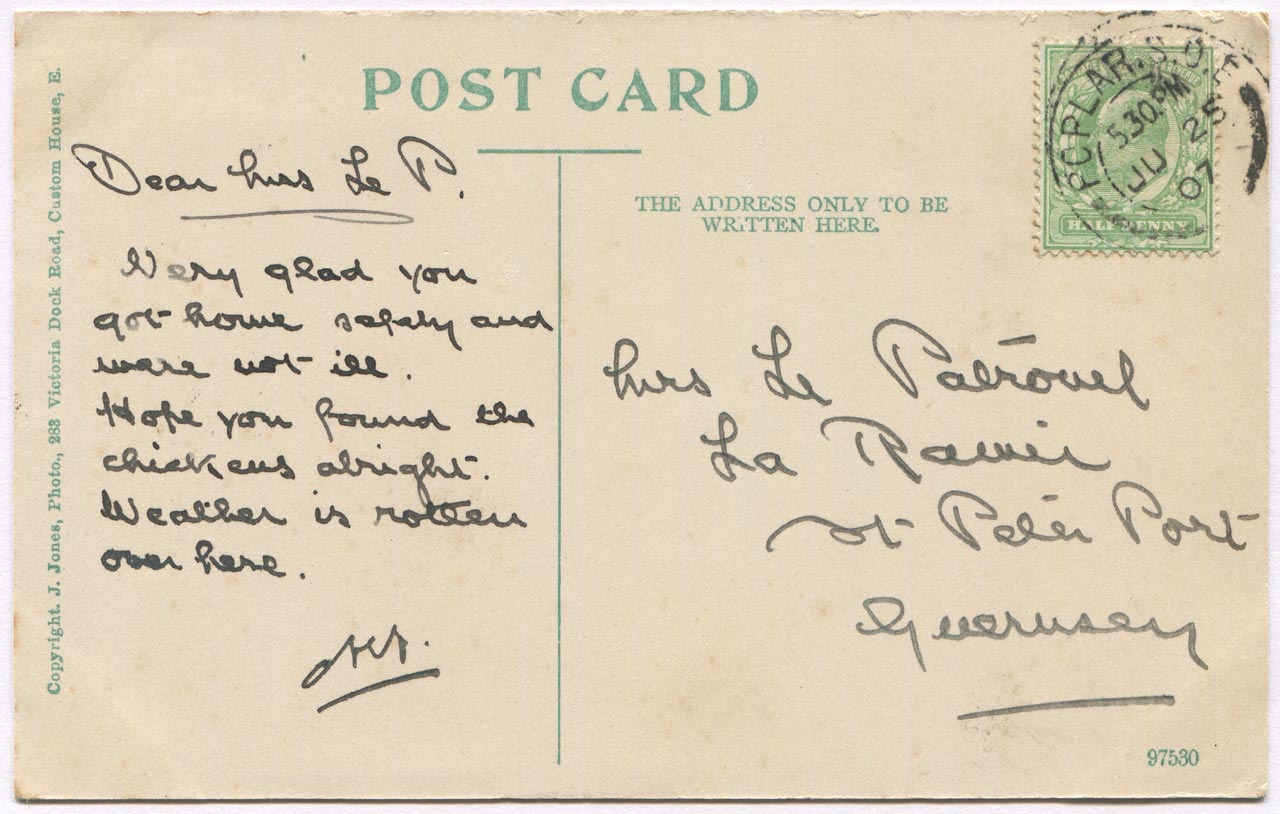 POST CARD
Copyright. J. Jones, Photo., 283 Victoria Dock Road, Custom House, E.
Dear Mrs Le P.
Very glad you
got home safely and
were not ill.
Hope you found the
chickens alright.
Weather is rotten
over here.
THE ADDRESS ONLY TO BE
WRITTEN HERE.
POPLAR. S.O. E
5.30. PM
JU 25
07
HALFPENNY
Mrs Le Patrouel
La Ramée
St Peter Port
Guernsey
97530